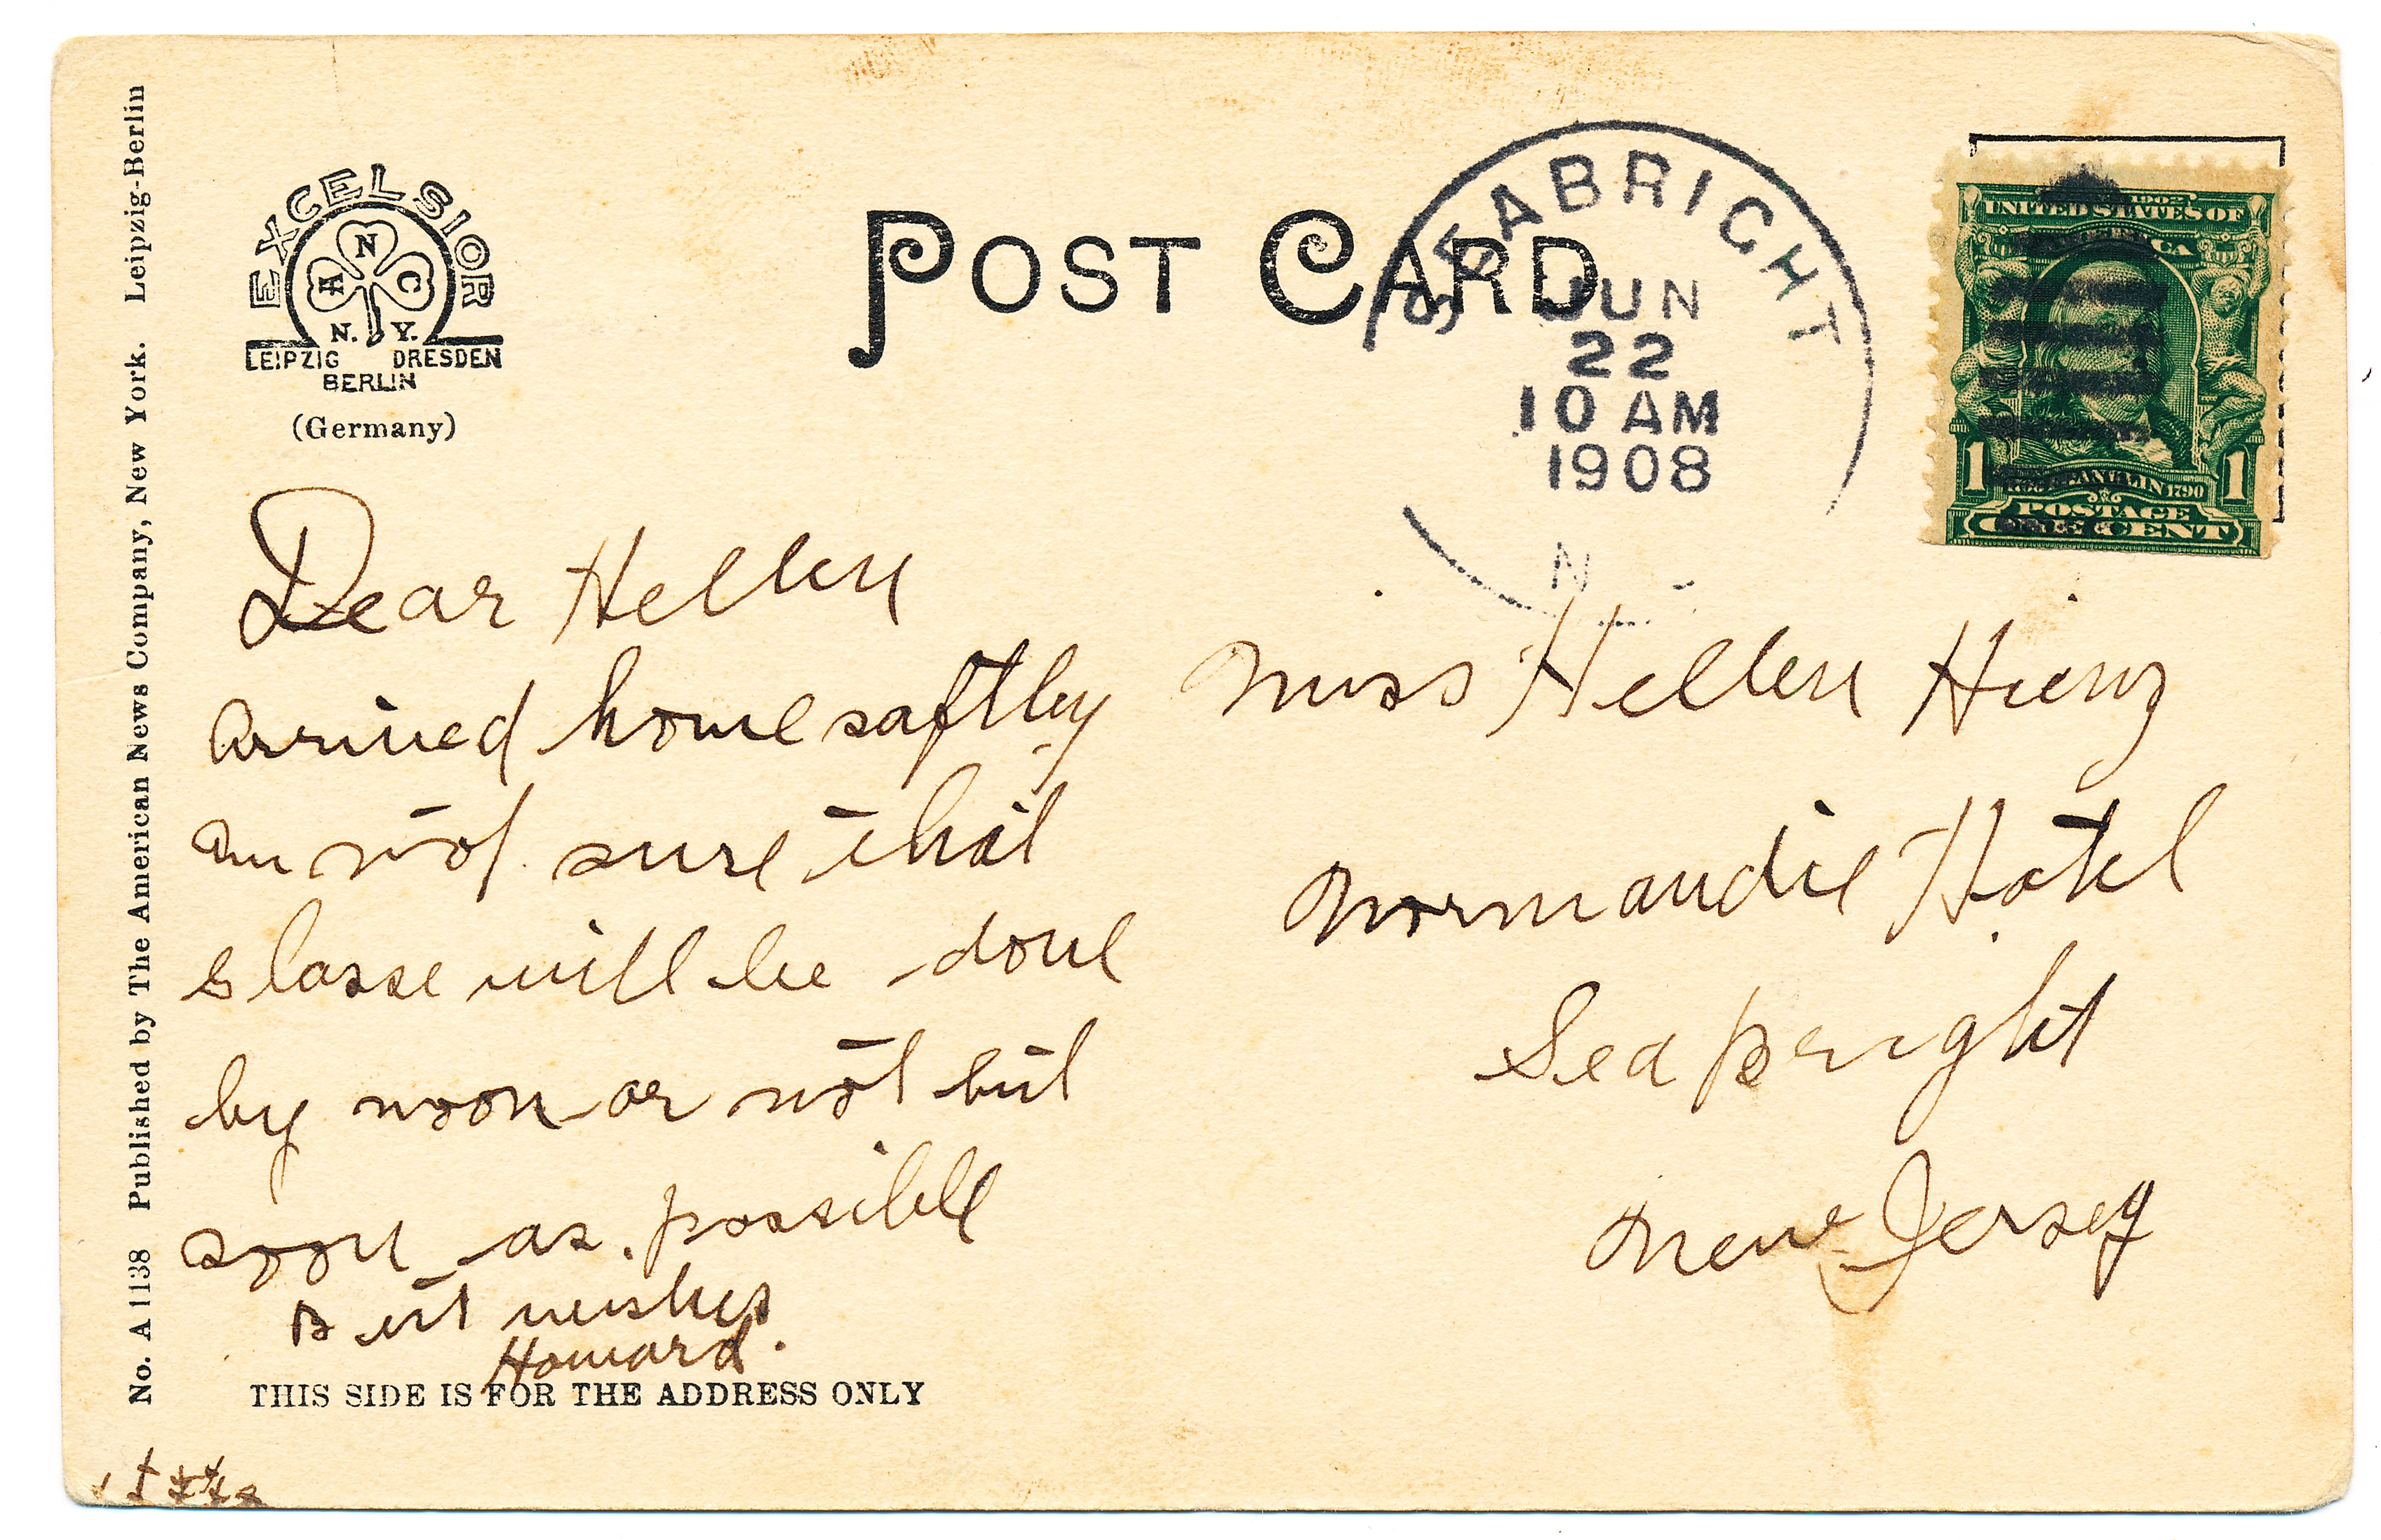 No. A 1138 Published by The American News Company, New York. Leipzig-Berlin
EXCELSIOR
A N C
N. Y.
LEIPZIG DRESDEN
BERLIN
(Germany)
POST CARD
SEABRIGHT
JUN
22
10 AM
1908
N
1902
UNITED STATES OF
AMERICA
FRANKLIN 1790
1 1
POSTAGE
ONE CENT
Dear Hellen
Arrived home saftley
am not sure that
will be done
by noon or not but
soon as possible
Best wishes
Howard.
THIS SIDE IS FOR THE ADDRESS ONLY
Miss Hellen Hienz
Normandie Hotel
Sea Bright
New Jersey